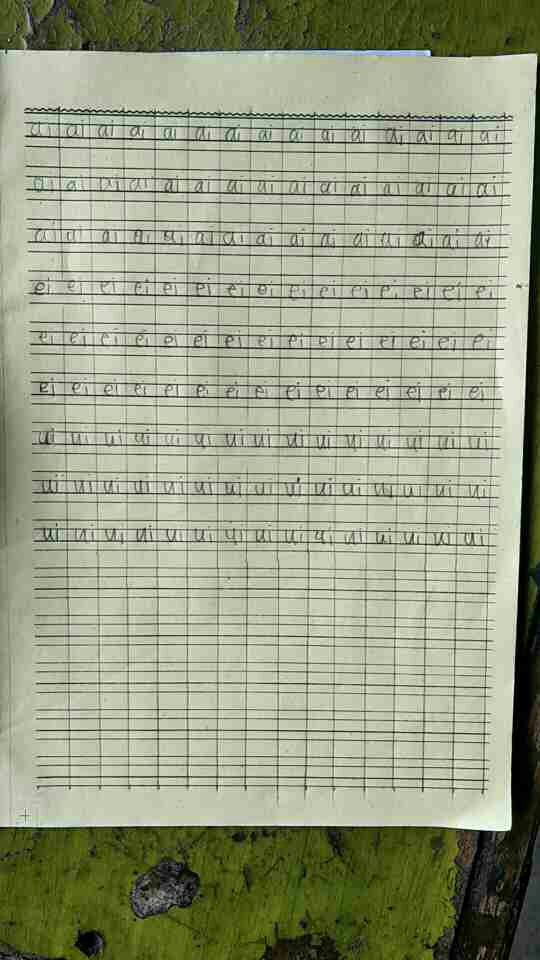 ai ai ai ai ai ai ai ai ai ai ai ai ai ai ai
ai ai ai ai ai ai ai ai ai ai ai ai ai ai ai
ai ai ai ai ai ai ai ai ai ai ai ai ai ai ai
ei ei ei ei ei ei ei ei ei ei ei ei ei ei ei
ei ei ei ei ei ei ei ei ei ei ei ei ei ei ei
ei ei ei ei ei ei ei ei ei ei ei ei ei ei ei
ui ui ui ui ui ui ui ui ui ui ui ui ui ui ui
ui ui ui ui ui ui ui ui ui ui ui ui ui ui ui
ui ui ui ui ui ui ui ui ui ui ui ui ui ui ui